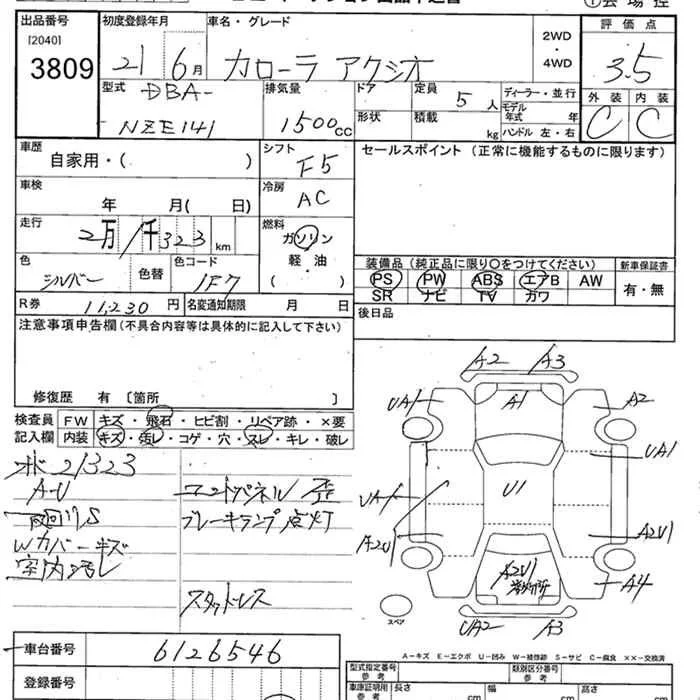 出品番号 [2040] 3809
初度登録年月 21 6月
車名・グレード カローラ アクシオ
2WD・4WD
評価点 3.5
型式 DBA-NZE141
排気量 1500cc
ドア
定員 5人
ディーラー・並行
形状
積載 kg
モデル年式 年
ハンドル 左・右
外装 C
内装 C
車歴 自家用・( )
シフト F5
セールスポイント (正常に機能するものに限ります)
車検 年 月( 日)
冷房 AC
走行 2万1千323km
燃料 ガソリン 軽・油 ( )
色 シルバー 色替
色コード 1F7
装備品(純正品に限り〇をつけてください)
新車保証書
PS PW ABS エアB AW
SR ナビ TV カワ
有・無
R券 11,230円
名変通知期限 月 日
後日品
注意事項申告欄(不具合内容等は具体的に記入して下さい)
修復歴 有 〔箇所 〕
検査員記入欄
FW キズ・飛石・ヒビ割・リペア跡・×要
内装 キズ・汚レ・コゲ・穴・スレ・キレ・破レ
21323
A-U
Wカバーキズ
室内汚レ
歪
ブレーキランプ点灯
スタッドレス
A2 A3
UA1 A1 A2
UA1
UA1 U1
A2U1 A2U1
A2U1
A4
UA2 A3
スペア
車台番号 6126546
登録番号
A-キズ E-エクボ U-凹み W-補修跡 S-サビ C-腐食 ××-交換済
型式指定番号 参考
類別区分番号 参考
車庫証明用 参考
長さ cm 幅 cm 高さ cm